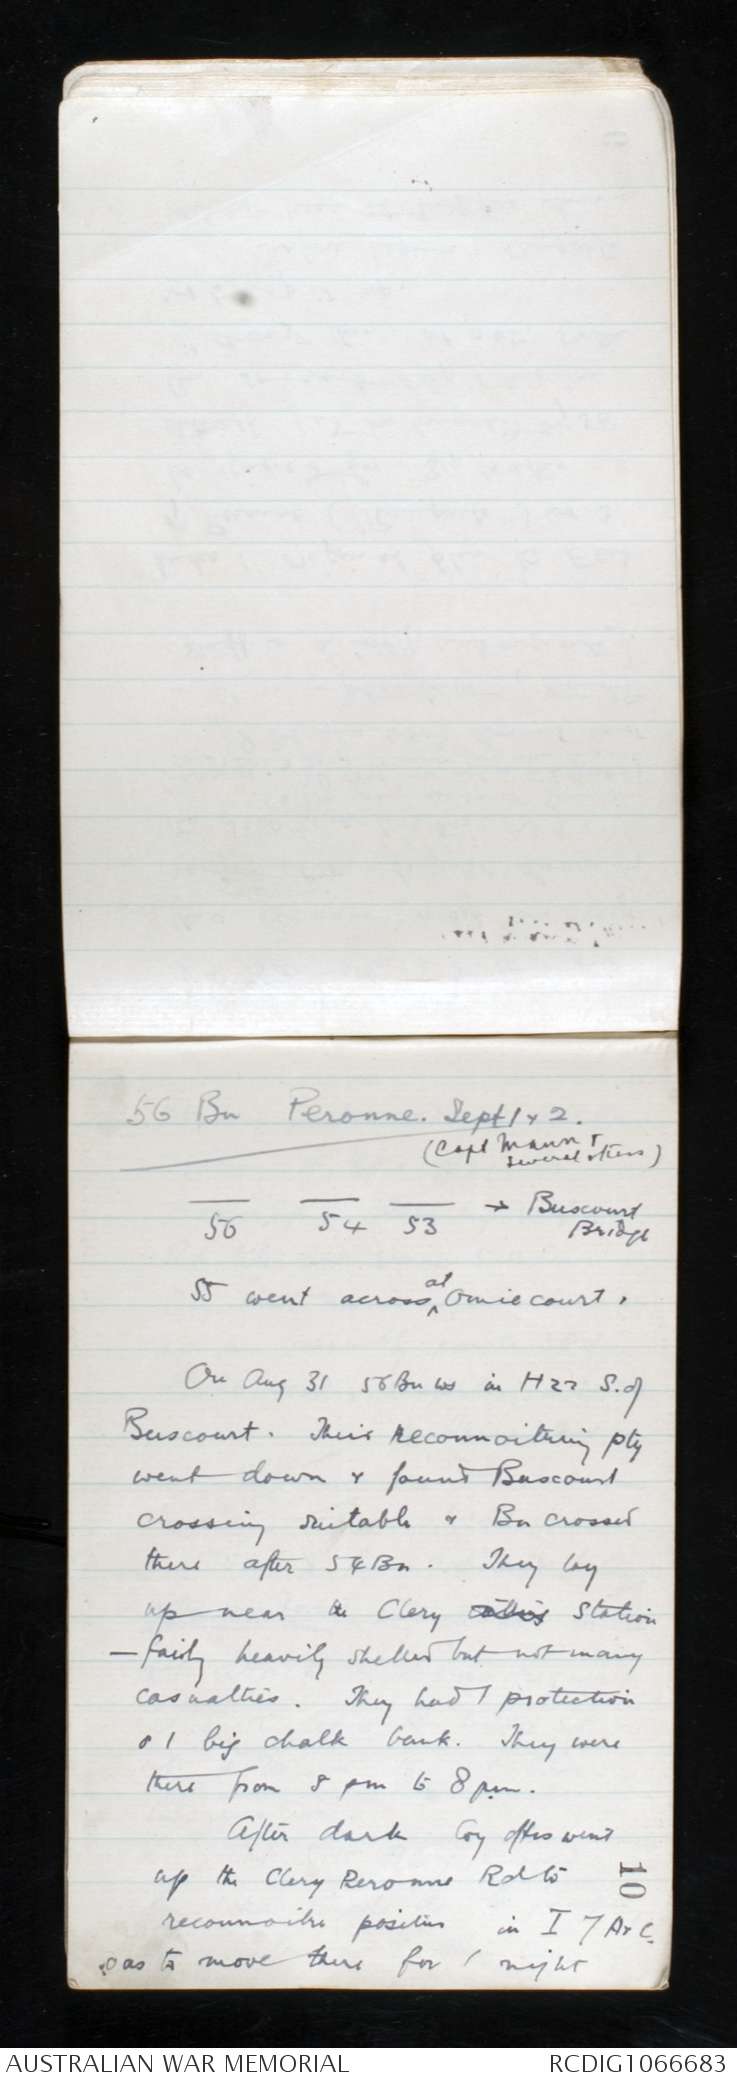 56 Bn Peronne. Sept 1 & 2.
(Capt Mann &
several others)
56 54 53 → Buscourt
Bridge
55 went across at Omiecourt.
On Aug 31 56 Bn ws in H22 S. of
Buscourt. Their reconnoitring pty
went down & found Buscourt
crossing suitable & Bn crossed
there after 54 Bn. They lay
up near the Clery Station
- fairly heavily shelled but not many
casualties. They had / protection
o / big chalk bank. They were
there from 5 pm to 8 pm.
After dark Coy offrs went
up the Clery Peronne Rd to
reconnoitre positions in I 7 A & C.
so as to move there for / night
10
AUSTRALIAN WAR MEMORIAL
RCDIG1066683